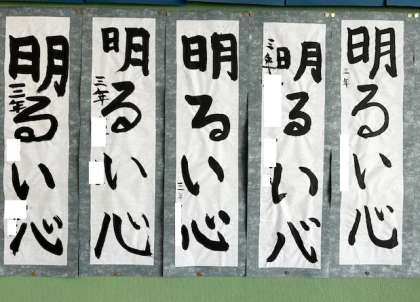 明るい心
三年
明るい心
三年
明るい心
三年
明るい心
三年
明るい心
二年